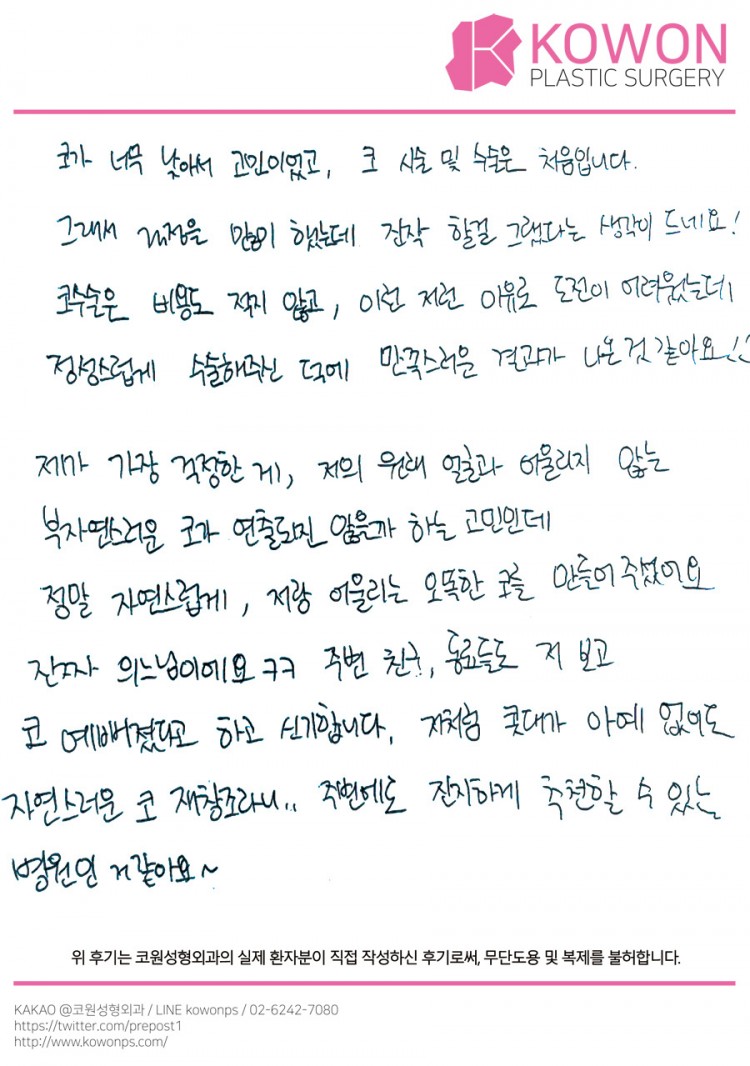 KOWON
PLASTIC SURGERY
코가 너무 낮아서 고민이었고, 코 시술 및 수술은 처음입니다.
그래서 걱정을 많이 했는데 진작 할걸 그랬다는 생각이 드네요!
코수술은 비용도 적지 않고, 이런 저런 이유로 도전이 어려웠는데
정성스럽게 수술해주신 덕에 만족스러운 결과가 나온것 같아요!!
제가 가장 걱정한 게, 저의 원래 얼굴과 어울리지 않는
부자연스러운 코가 연출되진 않을까 하는 고민인데
정말 자연스럽게, 저랑 어울리는 오똑한 코를 만들어 주셨어요
진짜 의느님이에요 ㅋㅋ 주변 친구, 동료들도 저 보고
코 예뻐졌다고 하고 신기합니다. 저처럼 콧대가 아예 없어도
자연스러운 코 재창조라니.. 주변에도 진지하게 추천할 수 있는
병원인 거같아요~
위 후기는 코원성형외과의 실제 환자분이 직접 작성하신 후기로써, 무단도용 및 복제를 불허합니다.
KAKAO @코원성형외과 / LINE kowonps / 02-6242-7080
https://twitter.com/prepost1
http://www.kowonps.com/